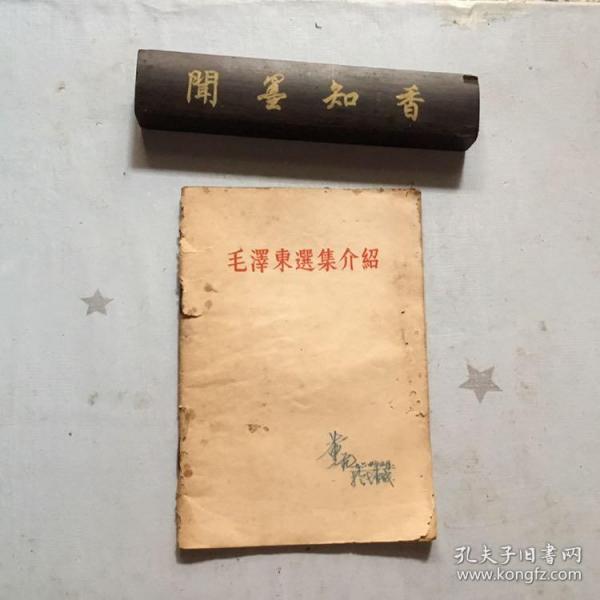 聞墨知香
毛澤東選集介紹
孔夫子旧书网
www.kongfz.com